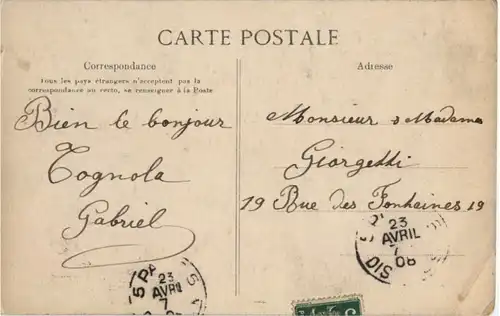 CARTE POSTALE
Correspondance
Tous les pays étrangers n'acceptent pas la
correspondance au recto, se renseigner à la Poste
Bien le bonjour
Tognola
Gabriel
Adresse
Monsieur & Madame
Giorgetti
19 Rue des Fontaines 19
23
AVRIL
7
08
DIS
5 PA
23
AVRIL
7